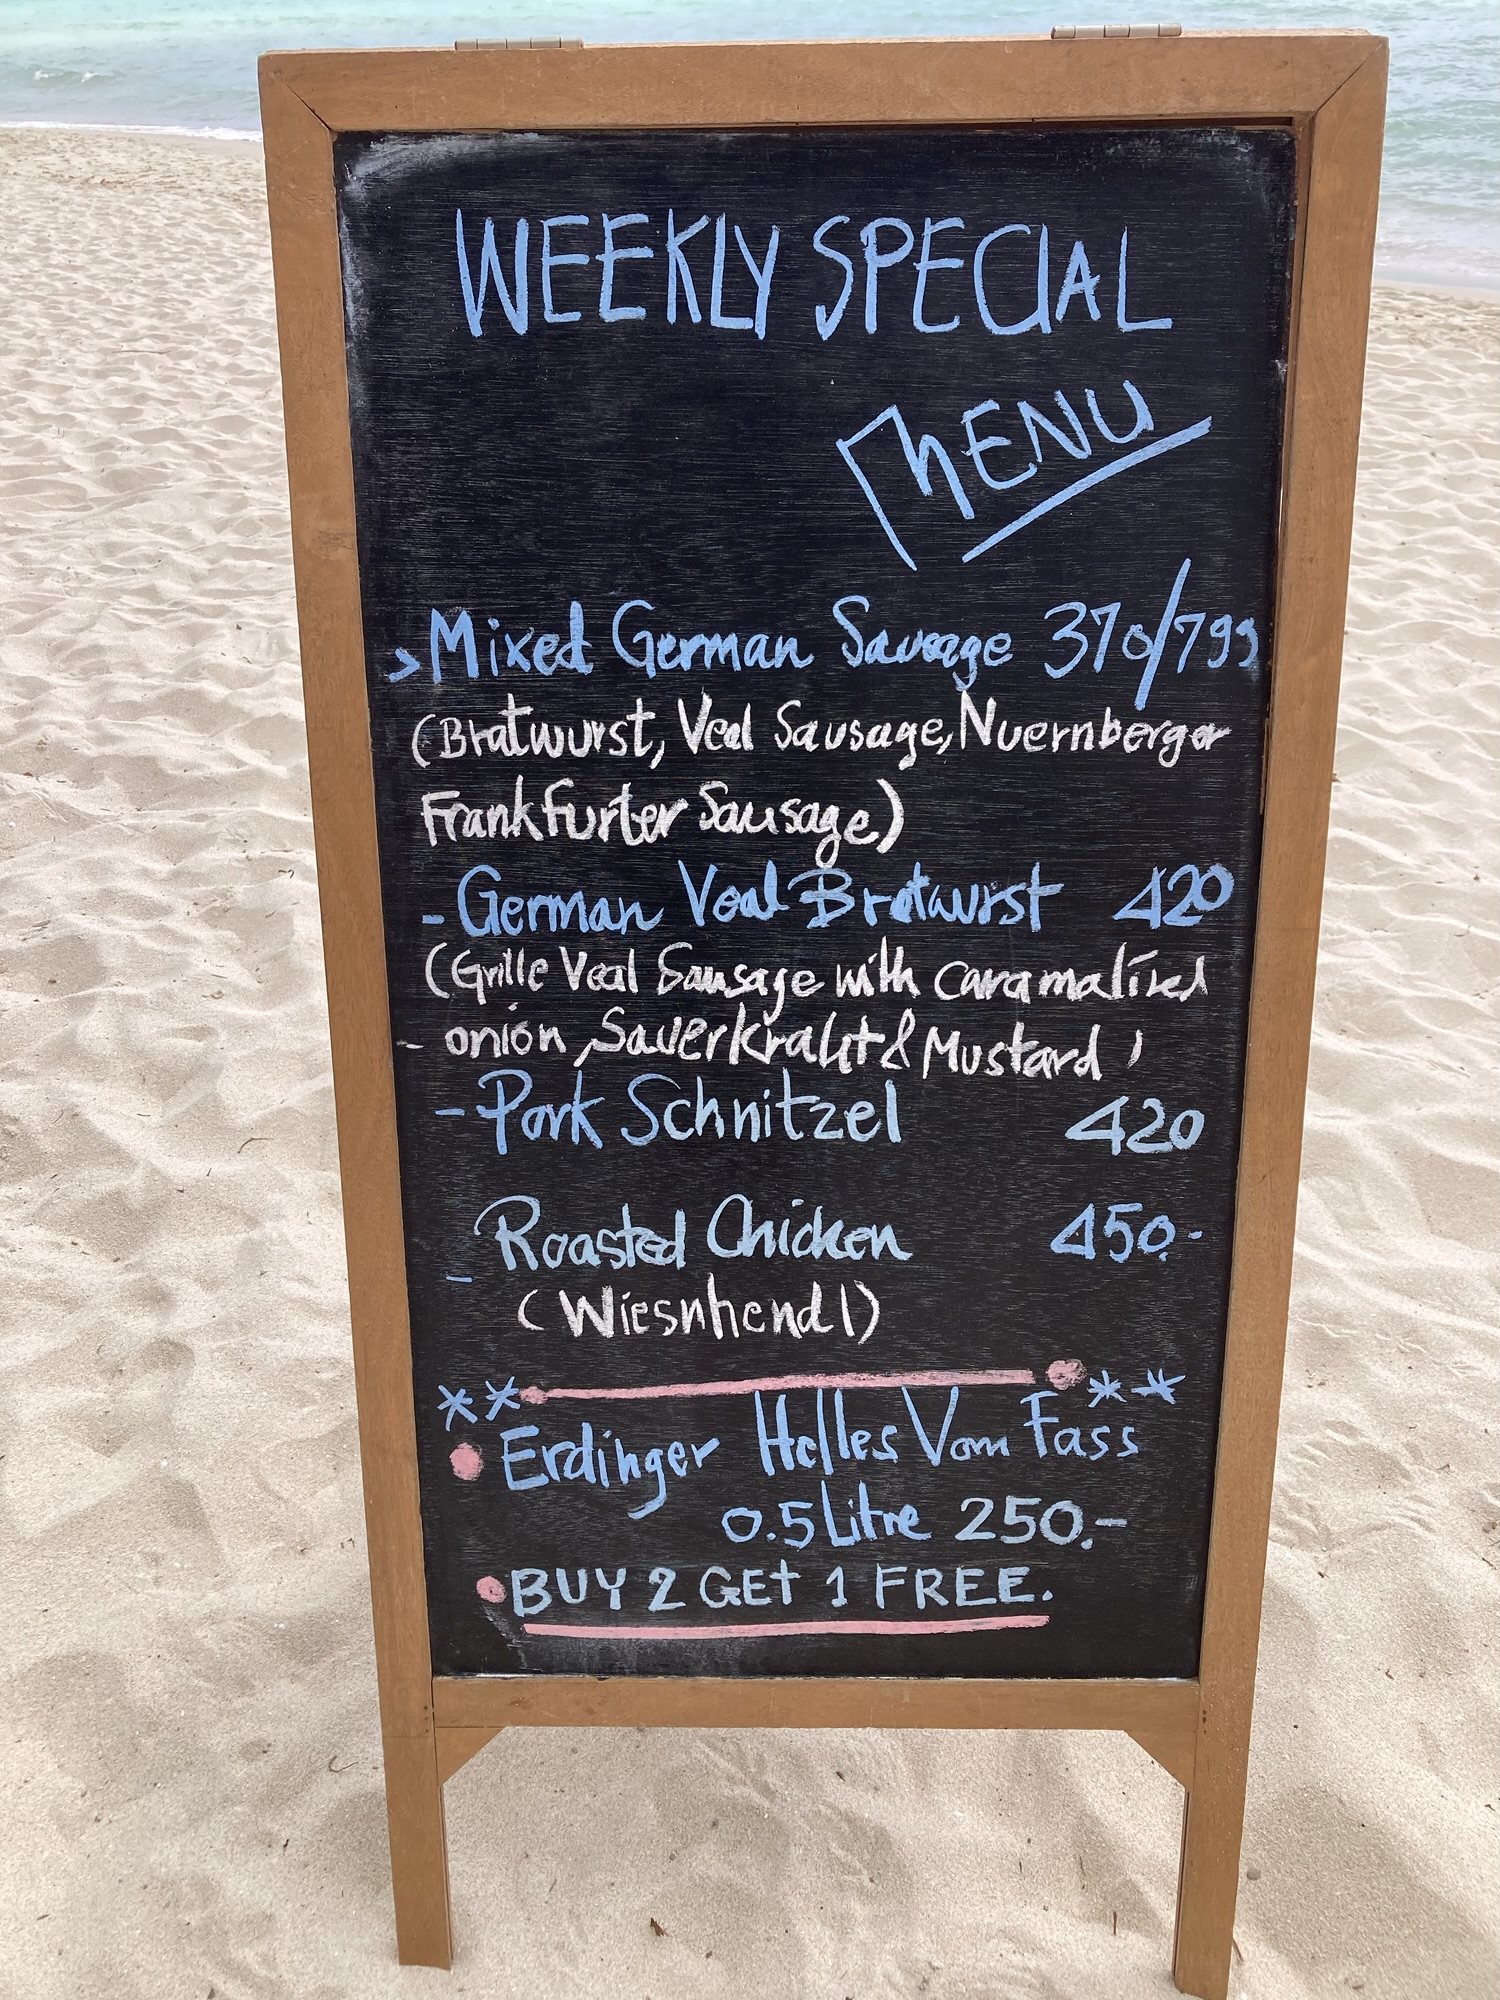 WEEKLY SPECIAL
MENU
> Mixed German Sausage 370/799
(Bratwurst, Veal Sausage, Nuernberger
Frankfurter Sausage)
- German Veal Bratwurst 420
(Grille Veal Sausage with caramalized
- onion, Sauerkraut & Mustard)
- Pork Schnitzel 420
- Roasted Chicken 450.-
(Wiesnhendl)
** **
Erdinger Helles Vom Fass
0.5 Litre 250.-
BUY 2 GET 1 FREE.